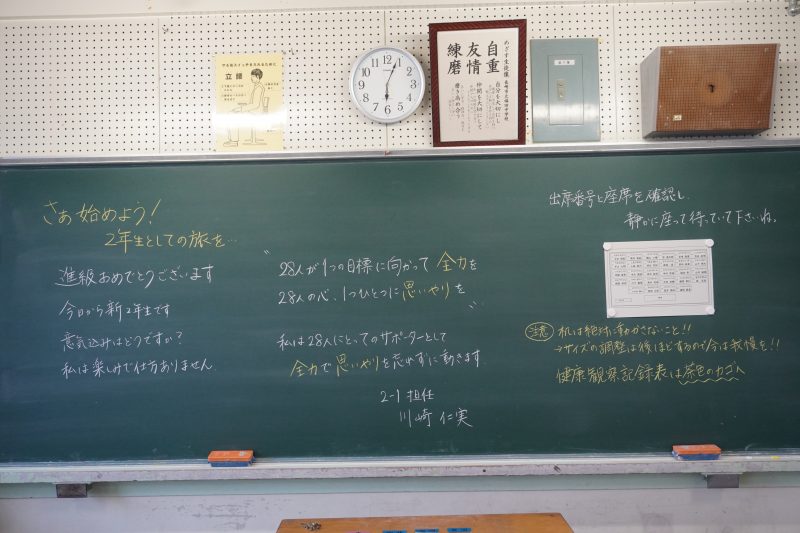 立腰
めざす生徒像
自重
友情
練磨
自分を大切にし
仲間を大切にして
磨き高め合う
さあ始めよう!
2年生としての旅を…
進級おめでとうございます
今日から新2年生です
意気込みはどうですか?
私は楽しみで仕方ありません
28人が1つの目標に向かって全力を
28人の心、1つひとつに思いやりを
私は28人にとってのサポーターとして
全力で思いやりを忘れずに動きます
2-1 担任
川崎 仁実
出席番号と座席を確認し、
静かに座って待っていて下さいね。
注意 机は絶対に動かさないこと!!
→サイズの調整は後ほどするので今は我慢を!!
健康観察記録表は茶色のカゴへ